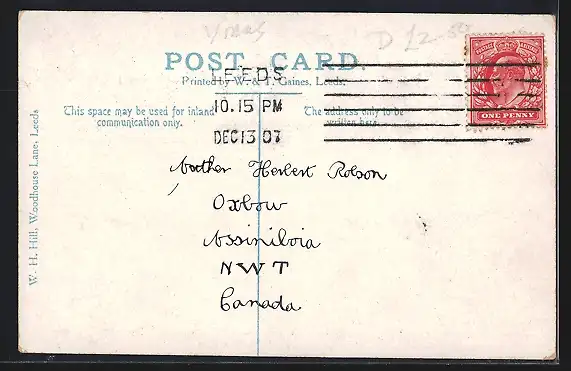 Xmas
D £2-50
POST CARD.
Printed by W. & T. Gaines, Leeds.
LEEDS
10.15 PM
DEC 13 07
POSTAGE REVENUE
ONE PENNY
This space may be used for inland
communication only.
The address only to be
written here.
W. H. Hill, Woodhouse Lane, Leeds
Herbert Robson
Oxbow
Assiniboia
NWT
Canada